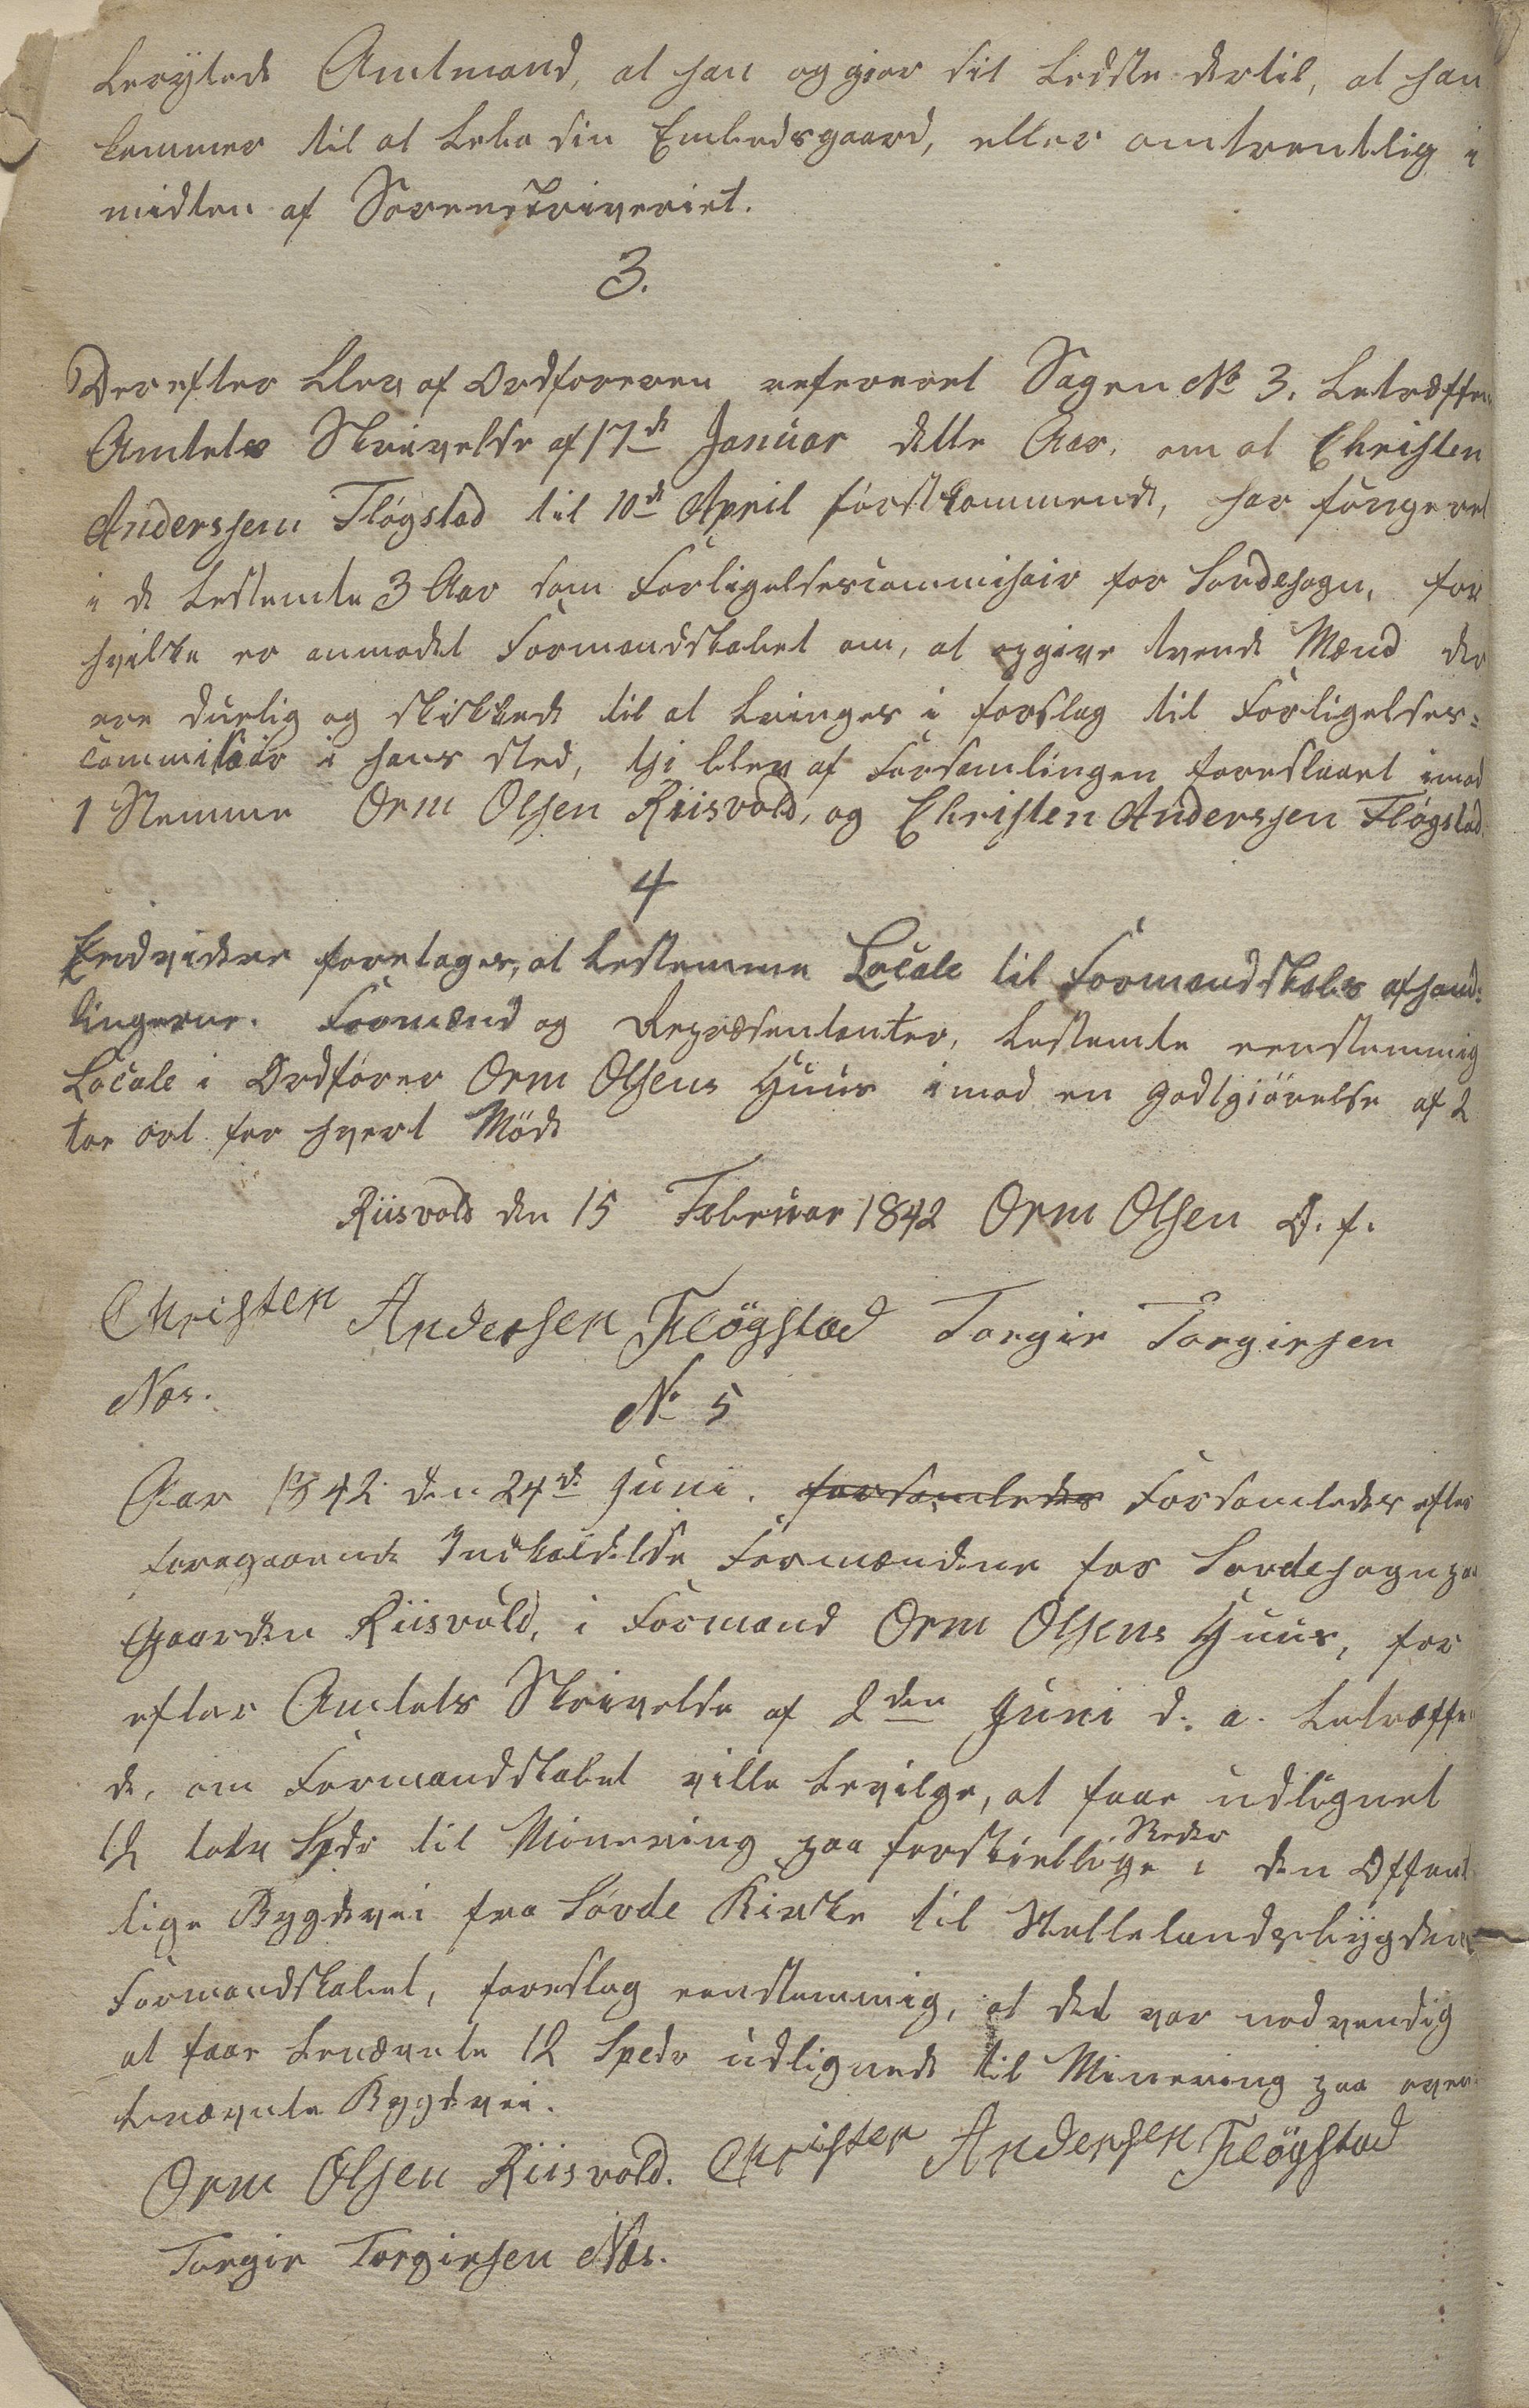 berÿtede Amtmand, at han og gjør sit bedste dertil, at han
kommer til at beboe sin Embedsgaard, eller omtrentlig i
midten af Sorenskriveriet.
3.
Derefter blev af Ordføreren refereret Sagen No 3. betræffen
Amtets Skrivelse af 17de Januar dette Aar, om at Christen
Anderssen Fløgstad til 10de April førstkommende, har fungeret
i de bestemte 3 Aar som Forligelsescommisair for Sovdesogn, for
hvilke er anmodet Formandskabet om, at opgive tvende Mænd der
ere duelig og skikkede til at bringes i forslag til Forligelses=
commissair i hans sted, thi blev af Forsamlingen foreslaaet imod
1 Stemme Orm Olsen Riisvold, og Christen Anderssen Fløgstad.
4
Endvidere foretages, at bestemme Locale til Formandskabs afhand=
lingerne. Formænd og Repræsentanter, bestemte eenstemmig
Locale i Ordfører Orm Olsens Huus imod en godtgiørelse af 2
toe ort for hvert Møde
Riisvold den 15 Februar 1842 Orm Olsen O. f.
Christen Andersen Fløgstad Torgir Torgirsen
Næs.
No 5
Aar 1842 den 24de Juni. forsamledes Forsamledes efter
foregaaende Indkaldelse Formændene for Sovdesogn paa
Gaarden Riisvold, i Formand Orm Olsens Huus, for
efter Amtets Skrivelse af 2den Juni d. a. betræffen
de, om Formandskabet ville bevilge, at faae udlignet
12 tolv Spdr til Minering paa forskiellige Steder i den Offent
lige Bygdevei fra Sovde Kirke til Hellelandsbygden
Formandskabet, foreslog eenstemmig, at det var nødvendig
at faae benævnte 12 Spedr udlignede til Minering paa oven=
benævnte Bygdevei.
Orm Olsen Riisvold. Christen Andersen Fløgstad
Torgir Torgirsen Næs.